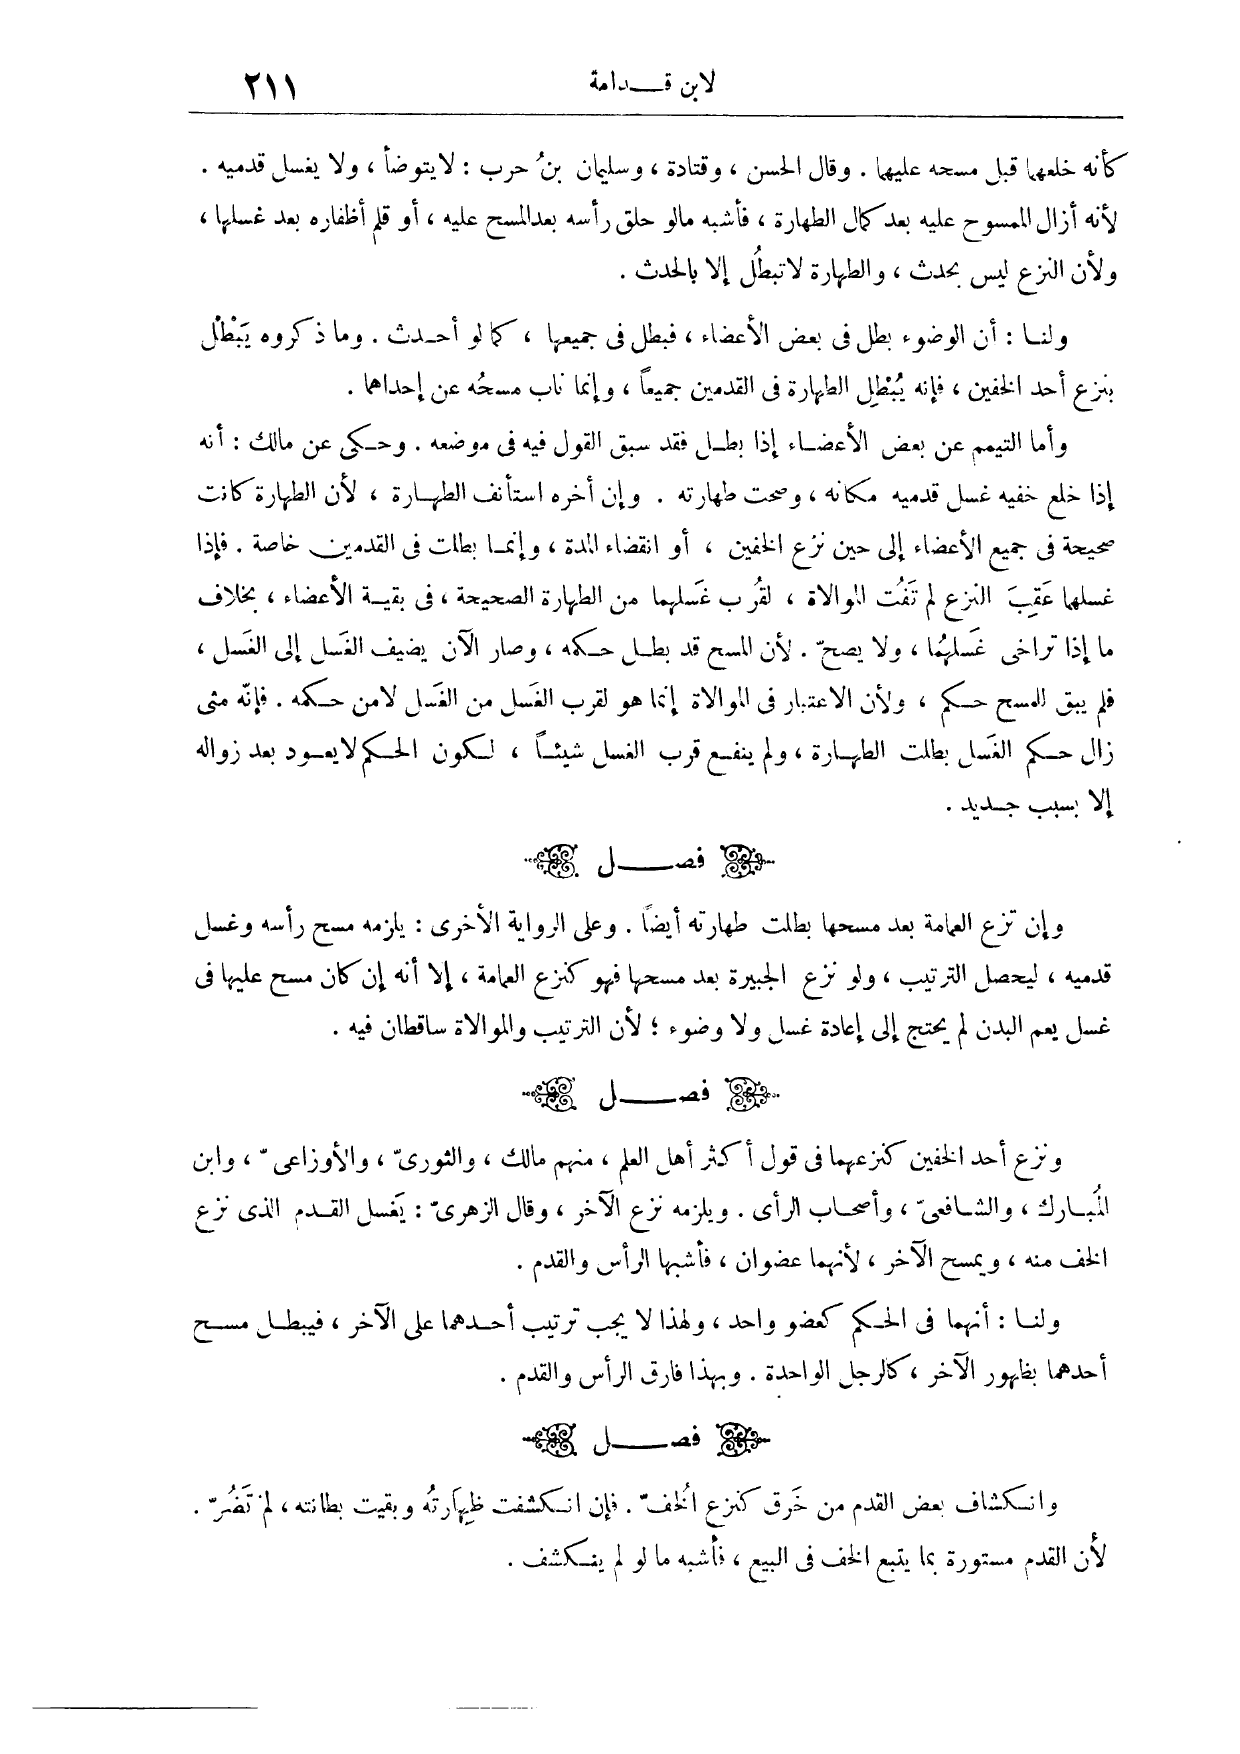 لابن قدامة
٢١١
كأنه خلعهما قبل مسحه عليهما . وقال الحسن ، وقتادة ، وسليمان بنُ حرب : لا يتوضأ ، ولا يغسل قدميه .
لأنه أزال الممسوح عليه بعد كمال الطهارة ، فأشبه مالو حلق رأسه بعدالمسح عليه ، أو قلم أظفاره بعد غسلها ،
ولأن النزع ليس بحدث ، والطهارة لا تبطُل إلا بالحدث .
ولنا : أن الوضوء بطل فى بعض الأعضاء ، فبطل فى جميعها ، كما لو أحدث . وما ذكروه يَبْطُل
بنزع أحد الخفين ، فإنه يُبْطِل الطهارة فى القدمين جميعاً ، وإنما ناب مسحُه عن إحداهما .
وأما التيمم عن بعض الأعضاء إذا بطل فقد سبق القول فيه فى موضعه . وحكى عن مالك : أنه
إذا خلع خفيه غسل قدميه مكانه ، وصحت طهارته . وإن أخره استأنف الطهارة ، لأن الطهارة كانت
صحيحة فى جميع الأعضاء إلى حين نزع الخفين ، أو انقضاء المدة ، وإنما بطلت فى القدمين خاصة . فإذا
غسلهما عَقِبَ النزع لم تَفُت الموالاة ، لقُرب غَسلهما من الطهارة الصحيحة ، فى بقية الأعضاء ، بخلاف
ما إذا تراخى غَسلهُما ، ولا يصحّ . لأن المسح قد بطل حكمه ، وصار الآن يضيف الغَسل إلى الغَسل ،
فلم يبق للمسح حكم ، ولأن الاعتبار فى الموالاة إنما هو لقرب الغَسل من الغَسل لامن حكمه . فإنّه متى
زال حكم الغَسل بطلت الطهارة ، ولم ينفع قرب الغسل شيئاً ، لكون الحكم لا يعود بعد زواله
إلا بسبب جديد .
فصل
وإن نزع العمامة بعد مسحها بطلت طهارته أيضاً . وعلى الرواية الأخرى : يلزمه مسح رأسه وغسل
قدميه ، ليحصل الترتيب ، ولو نزع الجبيرة بعد مسحها فهو كنزع العمامة ، إلا أنه إن كان مسح عليها فى
غسل يعم البدن لم يحتج إلى إعادة غسل ولا وضوء ؛ لأن الترتيب والموالاة ساقطان فيه .
فصل
ونزع أحد الخفين كنزعهما فى قول أكثر أهل العلم ، منهم مالك ، والثورىّ ، والأوزاعىّ ، وابن
المُبارك ، والشافعىّ ، وأصحاب الرأى . ويلزمه نزع الآخر ، وقال الزهرىّ : يَغسل القدم الذى نزع
الخف منه ، ويمسح الآخر ، لأنهما عضوان ، فأشبها الرأس والقدم .
ولنا : أنهما فى الحكم كعضو واحد ، ولهذا لا يجب ترتيب أحدهما على الآخر ، فيبطل مسح
أحدهما بظهور الآخر ، كالرجل الواحدة . وبهذا فارق الرأس والقدم .
فصل
وانكشاف بعض القدم من خَرق كنزع الخُفّ . فإن انكشفت ظِهارتُه وبقيت بطانته ، لم تَضُرّ .
لأن القدم مستورة بما يتبع الخف فى البيع ، فأشبه ما لو لم ينكشف .